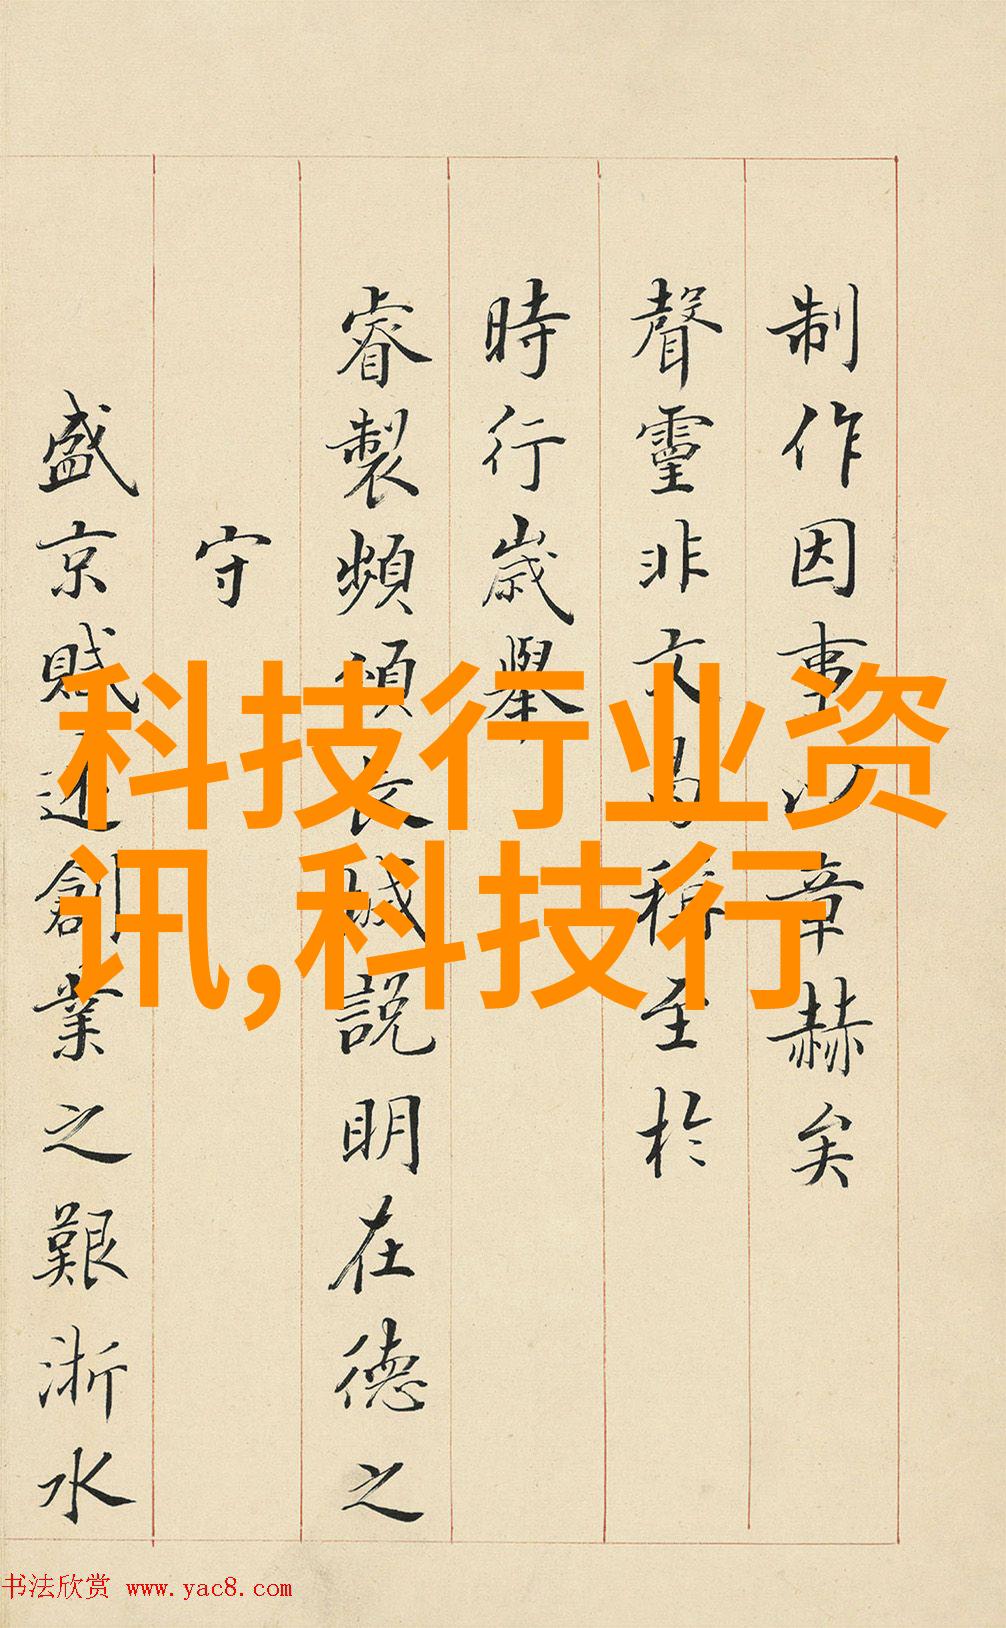 制作因事以章赫矣
聲靈非文曷稱至於
時行歲舉
睿製頻頒長城說明在德之
守
盛京賦述創業之艱浙水
科技行业资
讯,科技行
书法欣赏 www.yac8.com